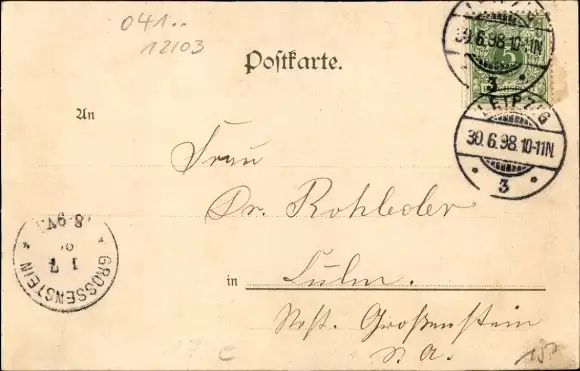 041..
12103
Postkarte.
LEIPZIG
30.6.98.10-11N.
3
LEIPZIG
30.6.98.10-11N.
3
5
An
Frau
Dr. Rohleder
in Culm
Post. Großenstein
S. A.
GROSSENSTEIN
1 7
98
8-9V.
15.-